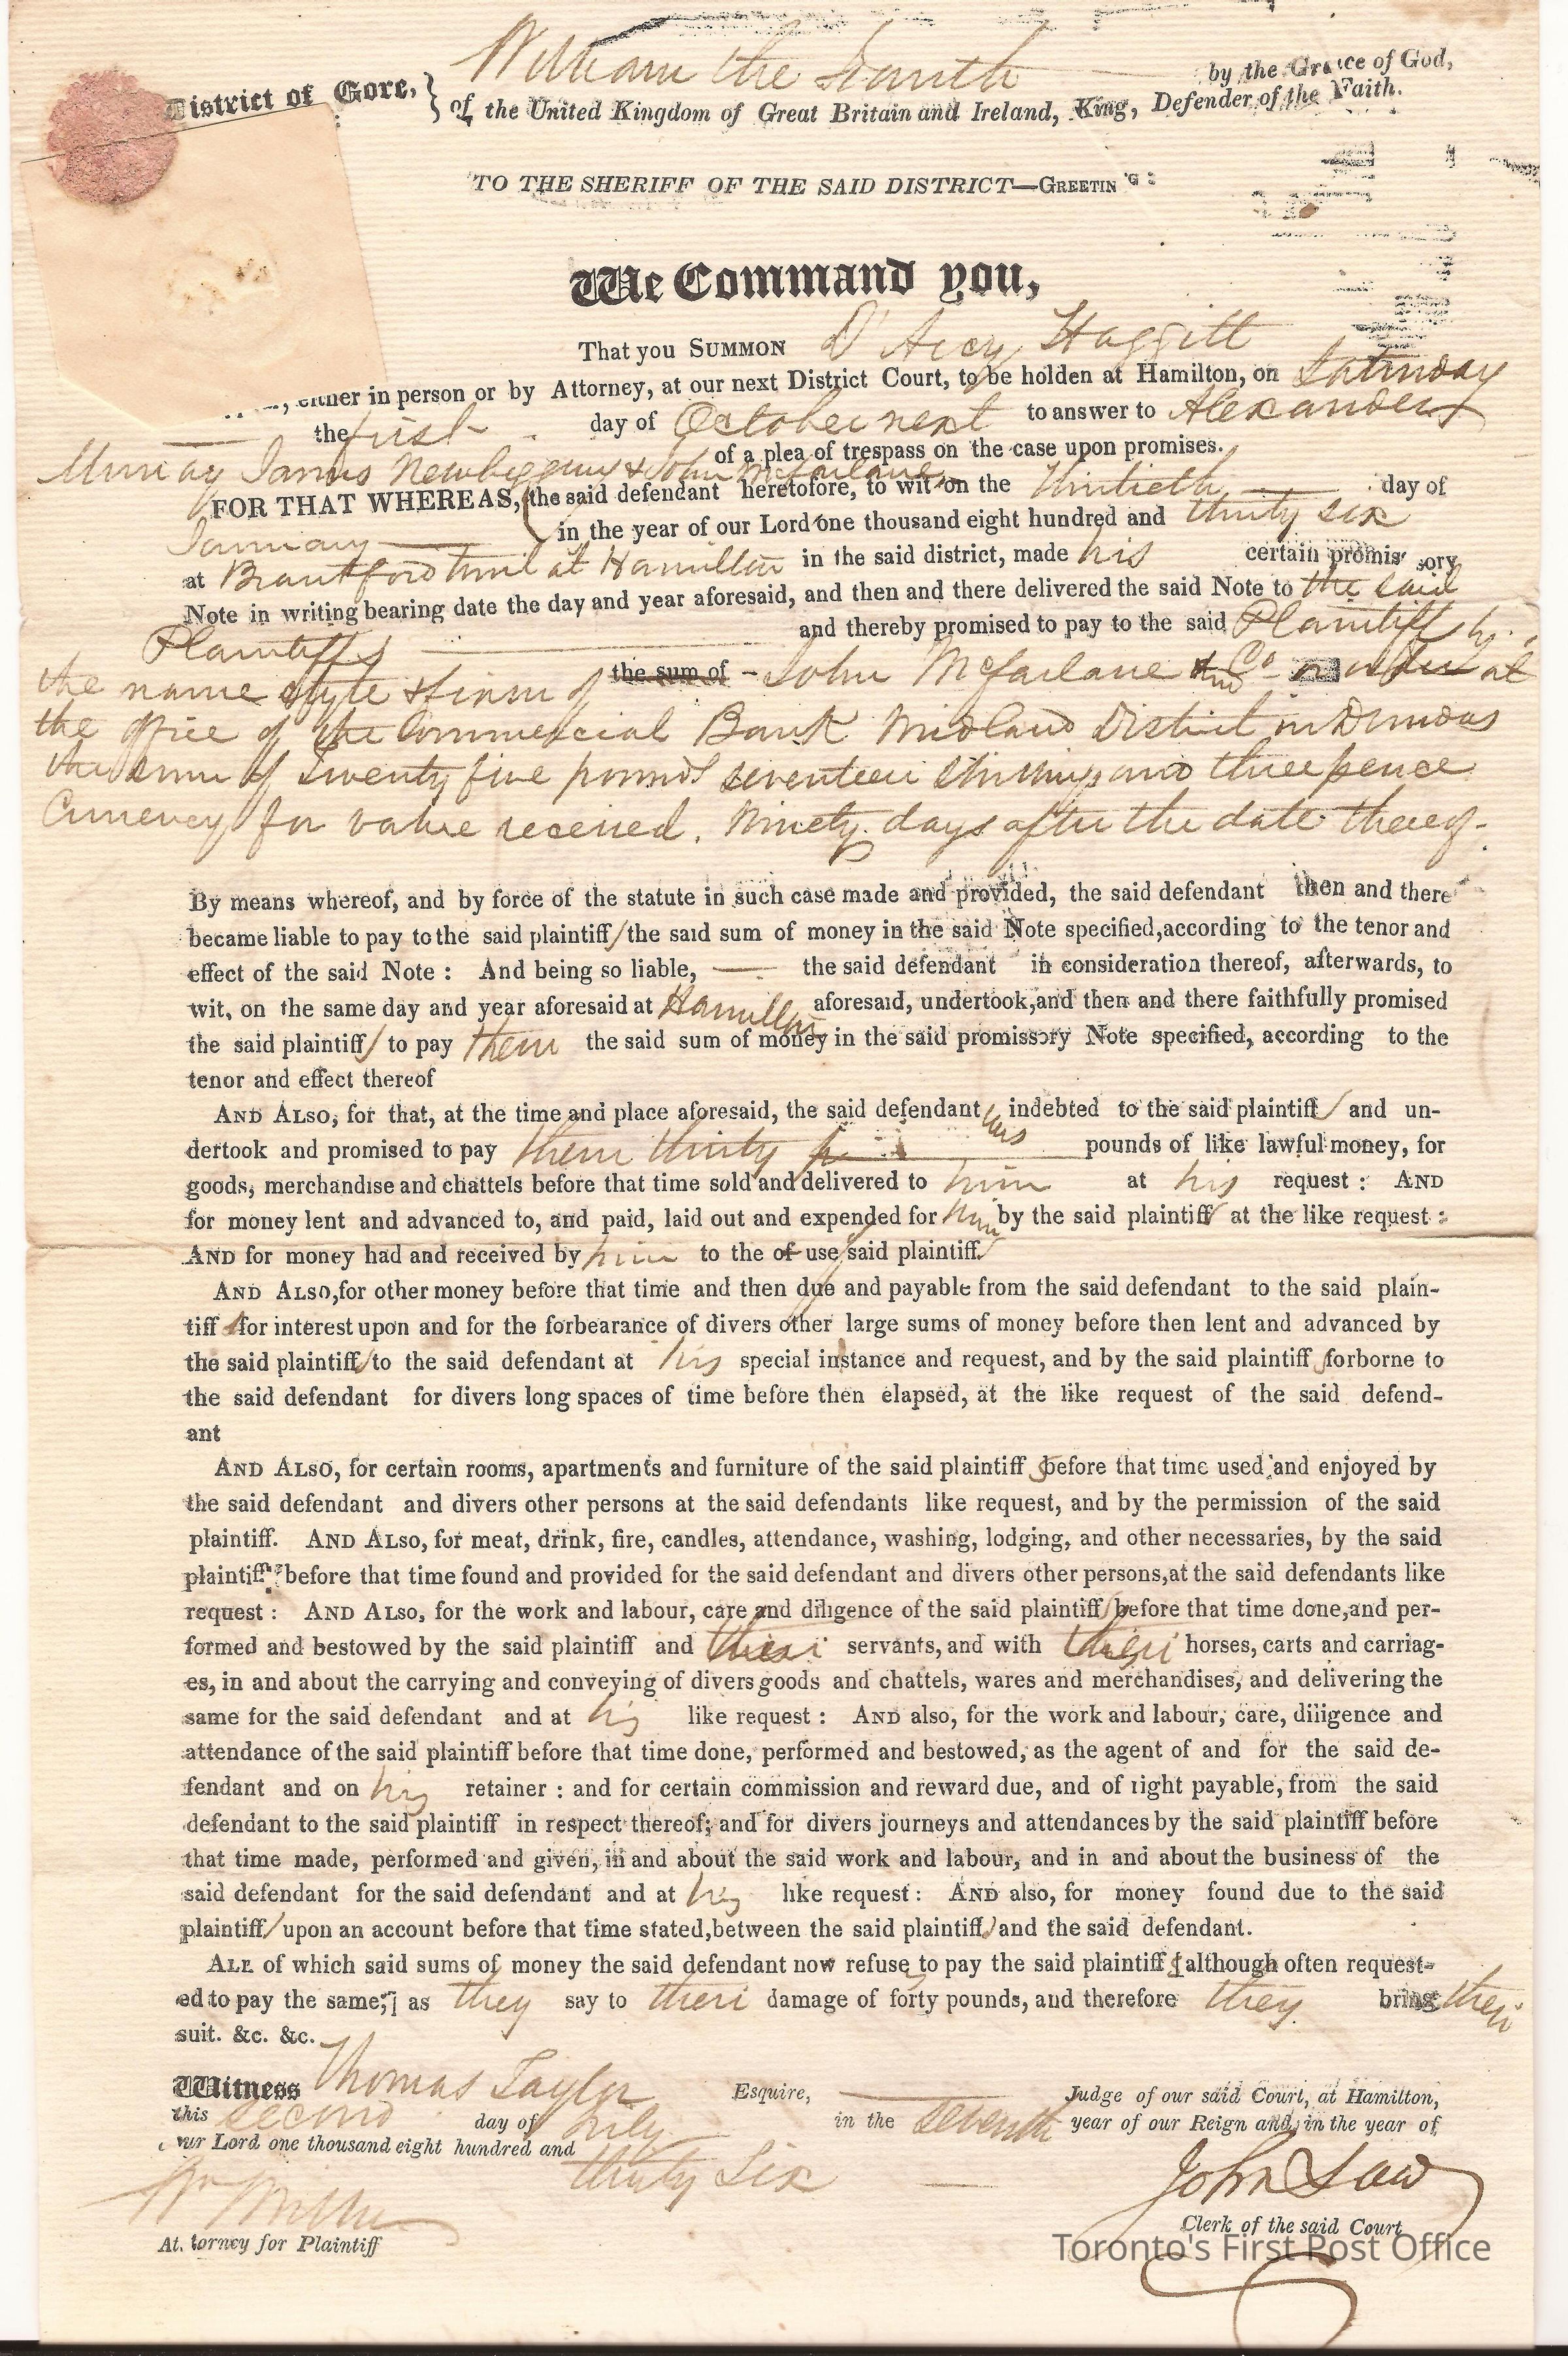 William the Fourth by the Grace of God,
District of Gore, } of the United Kingdom of Great Britain and Ireland, King, Defender of the Faith.
TO THE SHERIFF OF THE SAID DISTRICT—GREETING:
We Command you,
That you SUMMON D'Arcy Haggitt
either in person or by Attorney, at our next District Court, to be holden at Hamilton, on Saturday
the first day of October next to answer to Alexander
Murray James Newbigging & John McFarlane of a plea of trespass on the case upon promises.
FOR THAT WHEREAS, the said defendant heretofore, to wit on the Thirtieth day of
January in the year of our Lord one thousand eight hundred and thirty six
at Brantford to wit at Hamilton in the said district, made his certain promissory
Note in writing bearing date the day and year aforesaid, and then and there delivered the said Note to the said
Plaintiffs and thereby promised to pay to the said Plaintiffs by
the name style & firm of the sum of - John McFarlane & Co or order at
the office of the Commercial Bank Midland District in Dundas
the sum of Twenty five pounds seventeen shillings and three pence
Currency for value received. Ninety days after the date thereof.
By means whereof, and by force of the statute in such case made and provided, the said defendant then and there
became liable to pay to the said plaintiff/ the said sum of money in the said Note specified, according to the tenor and
effect of the said Note: And being so liable, — the said defendant in consideration thereof, afterwards, to
wit, on the same day and year aforesaid at Hamilton aforesaid, undertook, and then and there faithfully promised
the said plaintiff/ to pay them the said sum of money in the said promissory Note specified, according to the
tenor and effect thereof
AND ALSO, for that, at the time and place aforesaid, the said defendant was indebted to the said plaintiff/ and un-
dertook and promised to pay them thirty pounds of like lawful money, for
goods, merchandise and chattels before that time sold and delivered to him at his request: AND
for money lent and advanced to, and paid, laid out and expended for him by the said plaintiff at the like request:
AND for money had and received by him to the of use said plaintiff/
AND ALSO, for other money before that time and then due and payable from the said defendant to the said plain-
tiff for interest upon and for the forbearance of divers other large sums of money before then lent and advanced by
the said plaintiff/ to the said defendant at his special instance and request, and by the said plaintiffs forborne to
the said defendant for divers long spaces of time before then elapsed, at the like request of the said defend-
ant
AND ALSO, for certain rooms, apartments and furniture of the said plaintiff s before that time used and enjoyed by
the said defendant and divers other persons at the said defendants like request, and by the permission of the said
plaintiff. AND ALSO, for meat, drink, fire, candles, attendance, washing, lodging, and other necessaries, by the said
plaintiff before that time found and provided for the said defendant and divers other persons, at the said defendants like
request: AND ALSO, for the work and labour, care and diligence of the said plaintiffs before that time done, and per-
formed and bestowed by the said plaintiff and their servants, and with their horses, carts and carriag-
es, in and about the carrying and conveying of divers goods and chattels, wares and merchandises, and delivering the
same for the said defendant and at his like request: AND also, for the work and labour, care, diligence and
attendance of the said plaintiff before that time done, performed and bestowed, as the agent of and for the said de-
fendant and on his retainer: and for certain commission and reward due, and of right payable, from the said
defendant to the said plaintiff in respect thereof; and for divers journeys and attendances by the said plaintiff before
that time made, performed and given, in and about the said work and labour, and in and about the business of the
said defendant for the said defendant and at his like request: AND also, for money found due to the said
plaintiff/ upon an account before that time stated, between the said plaintiff/ and the said defendant.
ALL of which said sums of money the said defendant now refuse to pay the said plaintiff [although often request-
ed to pay the same;] as they say to their damage of forty pounds, and therefore they bring their
suit. &c. &c.
Witness Thomas Taylor Esquire, Judge of our said Court, at Hamilton,
this second day of July in the seventh year of our Reign and in the year of
our Lord one thousand eight hundred and
thirty Six
Wm Miller
Attorney for Plaintiff
John Law
Clerk of the said Court
Toronto's First Post Office